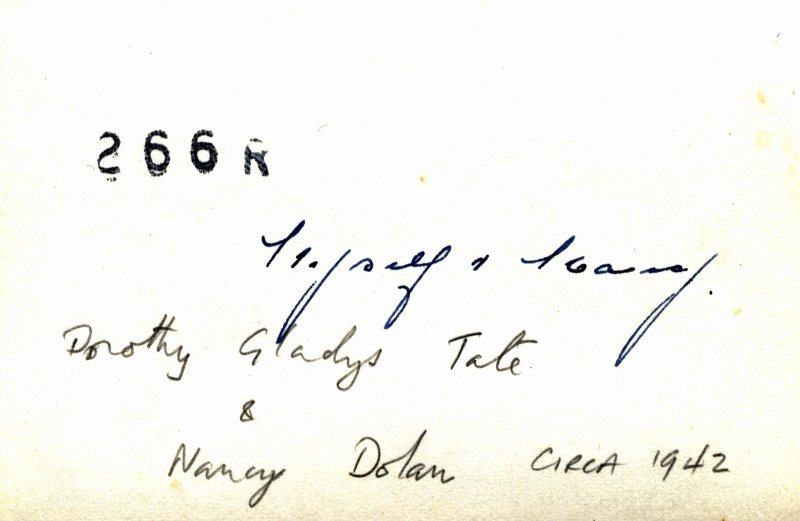 266 R
Myself & Nancy.
Dorothy Gladys Tate
&
Nancy Dolan CIRCA 1942